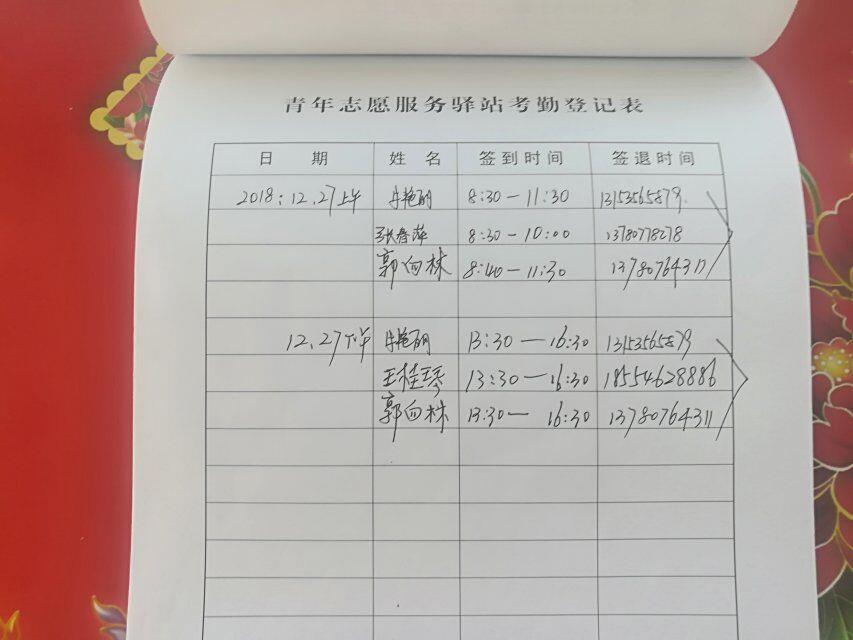 青年志愿服务驿站考勤登记表
日 期 姓 名 签到时间 签退时间
2018.12.27上午 牛艳丽 8:30-11:30 13153565879
张春萍 8:30-10:00 13780778278
郭向林 8:40-11:30 13780764311
12.27下午 牛艳丽 13:30-16:30 13153565879
王桂琴 13:30-16:30 18554628886
郭向林 13:30-16:30 13780764311